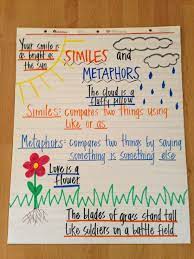 Your smile is
as bright as
the sun
SIMILES and
METAPHORS
The cloud is a
fluffy pillow
Similes: compares two things using
like or as
Metaphors: compares two things by saying
something is something else
Love is a
flower
The blades of grass stand tall
like soldiers on a battle field